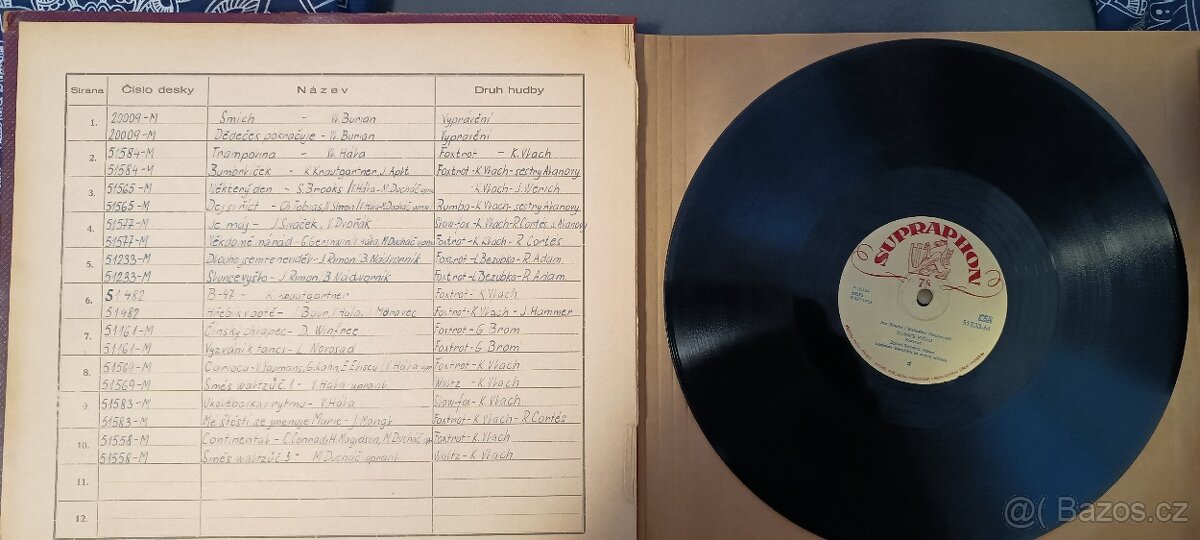 Strana Číslo desky Název Druh hudby
1. 20009-M Smích - Vl. Burian Vyprávění
20009-M Dědeček pokračuje - Vl. Burian Vyprávění
2. 51584-M Trampovina - Vl. Hála Foxtrot - K. Vlach
51584-M K. Krautgartner, J. Aplt Foxtrot - K. Vlach - sestry Allanovy
3. 51565-M Některý den - S. Brooks / V. Hála - M. Ducháč uprav K. Vlach - J. Werich
51565-M Dej si říct - Ch. Tobias, N. Simon / V. Hála - M. Ducháč uprav Rumba - K. Vlach - sestry Allanovy
4. 51577-M Je máj - J. Siváček, V. Dvořák Slowfox - K. Vlach - R. Cortés, s. Allanovy
51577-M Někdo mě má rád - G. Gershwin / V. Hála, M. Ducháč uprav Foxtrot - K. Vlach - R. Cortés
5. 51233-M Dlouho jsem tě neviděl - J. Rimon, B. Nádvorník Foxtrot - L. Bezubka - R. Adam
51233-M Slunce vyšlo - J. Rimon, B. Nádvorník Foxtrot - L. Bezubka - R. Adam
6. 51482 B-47 - K. Krautgartner Foxtrot - K. Vlach
51482 Hřebík v botě - Hála, J. Moravec Foxtrot - K. Vlach - J. Hammer
7. 51161-M Čínský chlapec - D. Winfree Foxtrot - G. Brom
51161-M Vyzvání k tanci - L. Novosad Foxtrot - G. Brom
8. 51569-M Carioca - V. Youmans, G. Kahn, E. Eliscu / V. Hála upravil Foxtrot - K. Vlach
51569-M Směs waltzů č. 1 - V. Hála upravil Waltz - K. Vlach
9. 51583-M Ukolébavka v rytmu - V. Hála Slow-fox - K. Vlach
51583-M Mé štěstí se jmenuje Marie - J. Mangl Foxtrot - K. Vlach - R. Cortés
10. 51558-M Continental - C. Conrad, H. Magidson, M. Ducháč upr Foxtrot - K. Vlach
51558-M Směs waltzů č. 3 - M. Ducháč upravil Waltz - K. Vlach
11.
12.
SUPRAPHON
78
51233-M
@( Bazos.cz